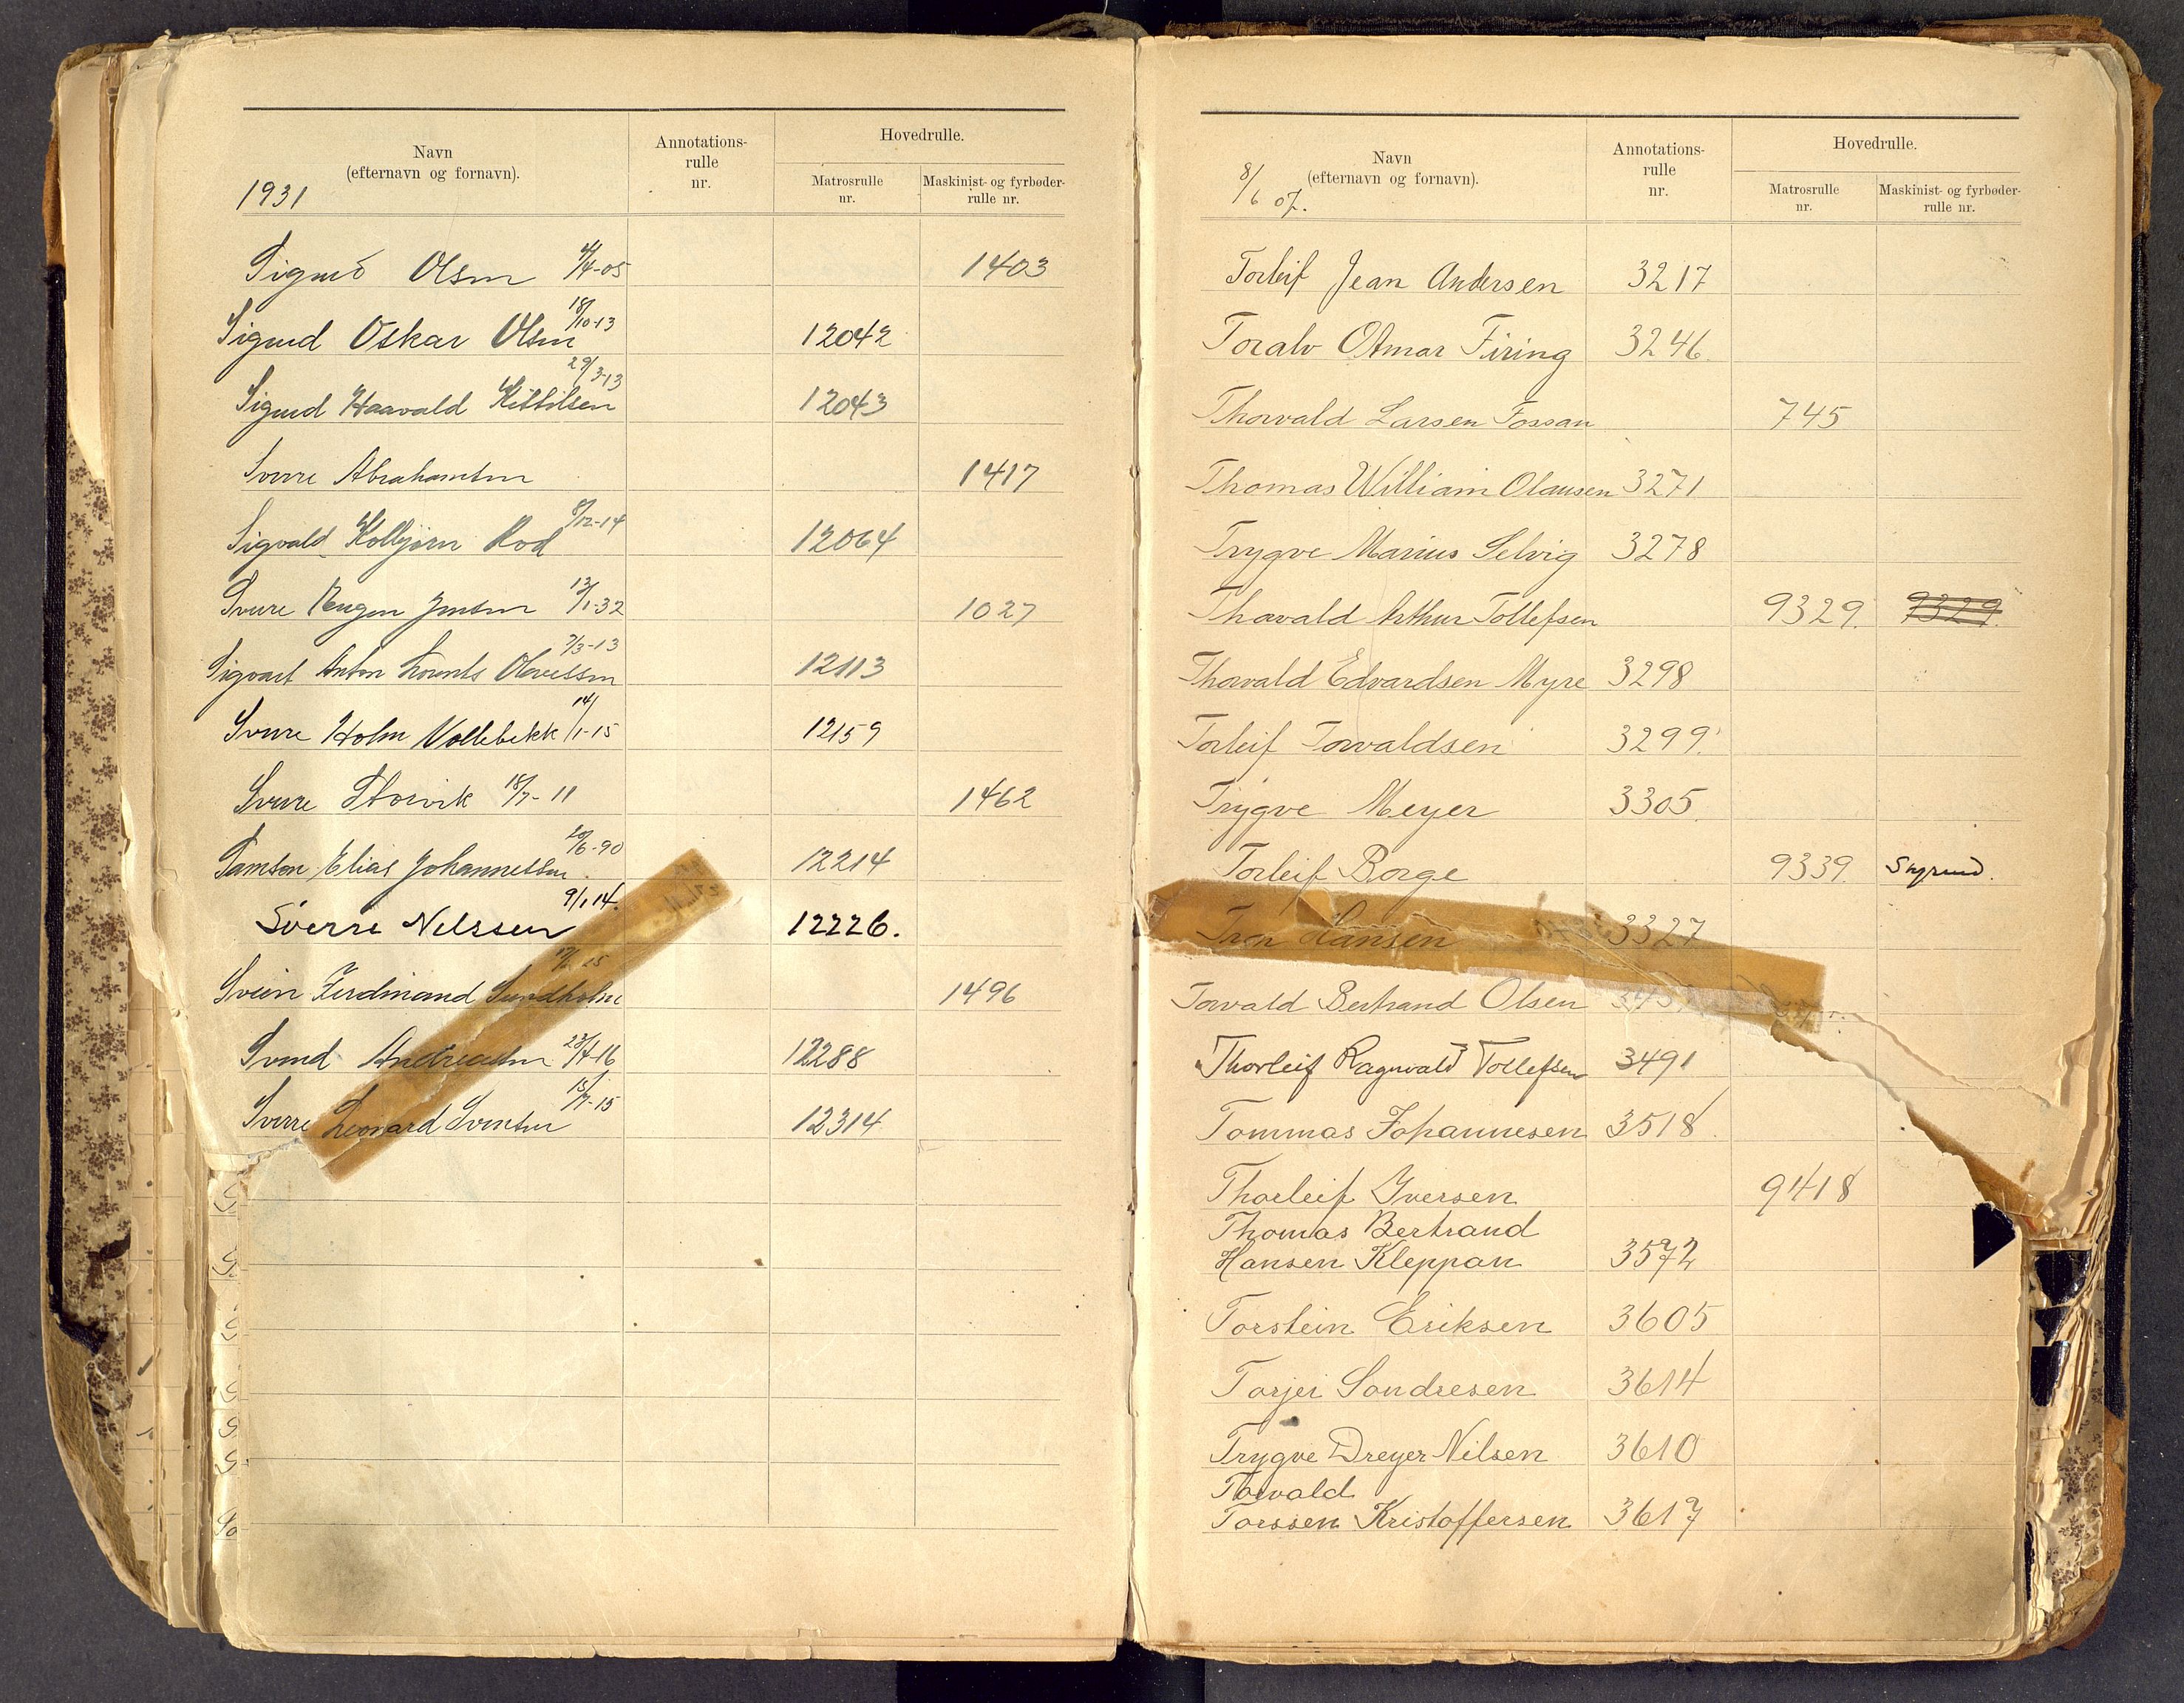 Navn
(efternavn og fornavn).
1931
Annotations-
rulle
nr.
Hovedrulle.
Matrosrulle
nr.
Maskinist- og fyrbøder-
rulle nr.
Sigurd Olsen 4/4-05 1403
Sigurd Oskar Olsen 18/10-13 12042
Sigurd Haavald Kittilsen 29/3-13 12043
Sverre Abrahamsen 1417
Sigvald Kolbjørn Rod 8/12-14 12064
Sverre Eugen Jensen 13/1-32 1027
Sigvart Anton Lorents Olavessen 7/3-13 12113
Sverre Holm Vollebekk 14/1-15 12159
Sverre Storvik 18/7-11 1462
Samson Elias Johannessen 20/6-90 12214
Sverre Nilssen 9/1 14. 12226.
Svein Ferdinand Sundholm 1496
Svend Andreassen 23/4-16 12288
Sverre Leonard Svensen 15/7-15 12314
8/6 07.
Navn
(efternavn og fornavn).
Annotations-
rulle
nr.
Hovedrulle.
Matrosrulle
nr.
Maskinist- og fyrbøder-
rulle nr.
Torleif Jean Andersen 3217
Toralv Otmar Firing 3246.
Thorvald Larsen Fossan 745
Thomas William Olausen 3271
Trygve Marius Selvig 3278
Thorvald Arthur Tollefsen 9329. 9329.
Thorvald Edvardsen Myre 3298
Torleif Torvaldsen 3299.
Trygve Meyer 3305.
Torleif Borge 9339.
Tron Hansen 3327
Torvald Bertrand Olsen
Thorleif Ragnvald Tollefsen 3491
Tommas Johannesen 3518.
Thorleif Iversen 9418
Thomas Bertrand
Hansen Kleppan 3572
Torstein Eriksen 3605
Torjei Sondresen 3614
Trygve Dreyer Nilsen 3610
Torvald
Torssen Kristoffersen 3617